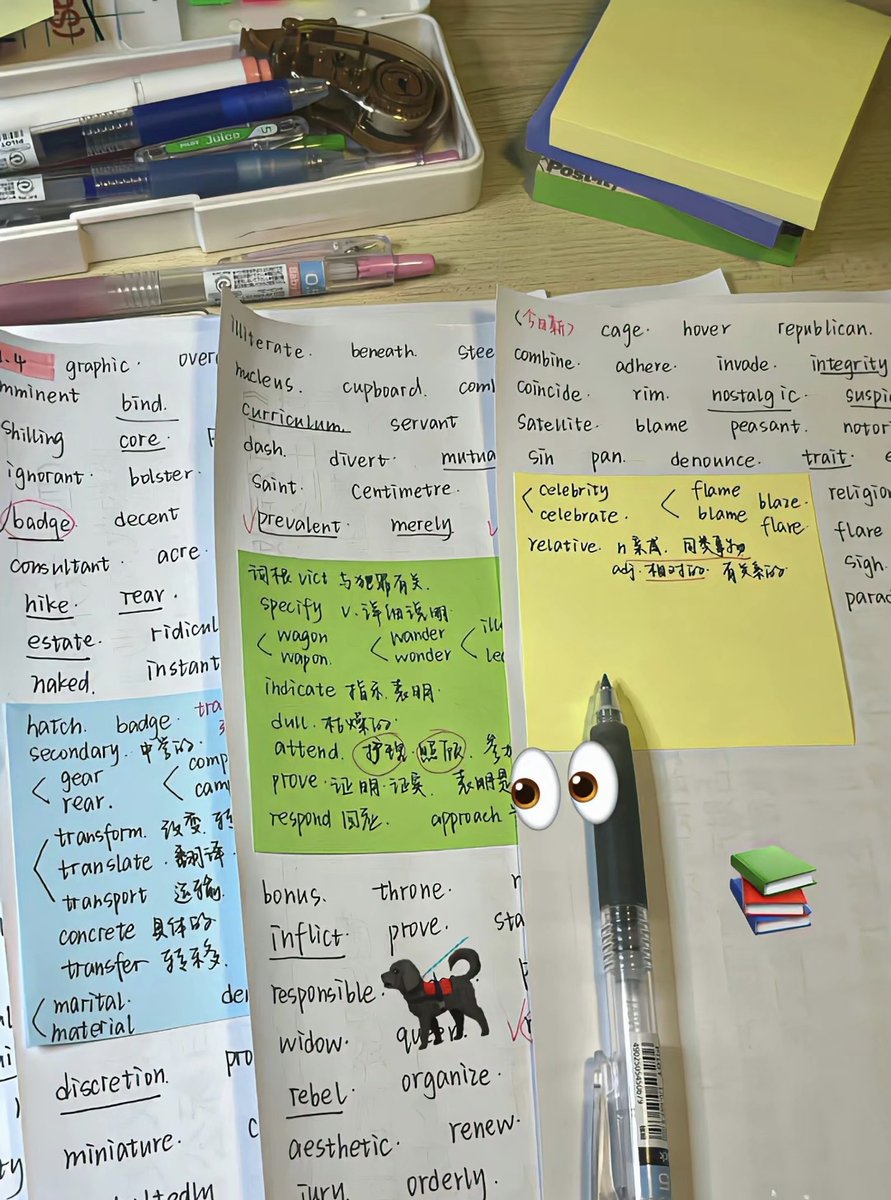 PILOT Juice 5
Post-it
graphic.
imminent bind.
shilling core.
ignorant bolster.
badge decent
consultant acre.
hike. rear.
estate. ridicul
naked. instant
hatch. badge.
secondary. 中学的.
gear
rear.
transform. 改变. 转
translate. 翻译
transport 运输.
concrete 具体的
transfer 转移.
marital.
material
discretion.
miniature.
illiterate. beneath.
nucleus. cupboard.
curriculum. servant
dash. divert.
saint. centimetre.
prevalent. merely
词根 vict 与犯罪有关.
specify v. 详细说明.
wagon wander
wapon. wonder
indicate 指示. 表明.
dull. 枯燥的
attend. 护理. 照顾.
prove. 证明. 证实. 表明是
respond 回应. approach
bonus. throne.
inflict. prove.
responsible.
widow. queen
rebel. organize.
aesthetic. renew.
jury. orderly.
<今日新> cage. hover republican.
combine. adhere. invade. integrity
coincide. rim. nostalgic. suspi
satellite. blame peasant. notor
sin pan. denounce. trait.
celebrity flame blaze.
celebrate. blame flare.
relative. n 亲戚. 同类事物
adj. 相对的. 有关系的
religion
flare
sigh.
parad
4902505450679